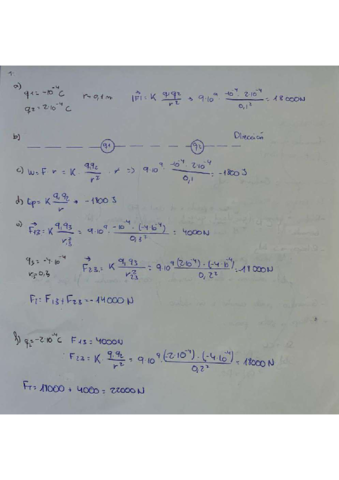 a) q1 = -10⁻⁴ C r = 0,1 m |F| = K q1·q2/r² = 9·10⁹ · -10⁻⁴ · 2·10⁻⁴/0,1² = 18000 N
q2 = 2·10⁻⁴ C
b) q1 q2 Dirección
c) W = F · r = K q1q2/r² · r => 9·10⁹ · -10⁻⁴ · 2·10⁻⁴/0,1 = -1800 J
d) Ep = K q1·q2/r = -1800 J
e) F13 = K q1·q3/r² = 9·10⁹ · -10⁻⁴ · (-4·10⁻⁴)/0,3² = 4000 N
q3 = -4·10⁻⁴ F23 = K q2·q3/r23² = 9·10⁹ (2·10⁻⁴) · (-4·10⁻⁴)/0,2² = 18000 N
FT = F13 + F23 = -14000 N
f) q2 = -2·10⁻⁴ C F13 = 4000 N
F23 = K q2·q3/r² = 9·10⁹ (-2·10⁻⁴) · (-4·10⁻⁴)/0,2² = 18000 N
FT = 18000 + 4000 = 22000 N